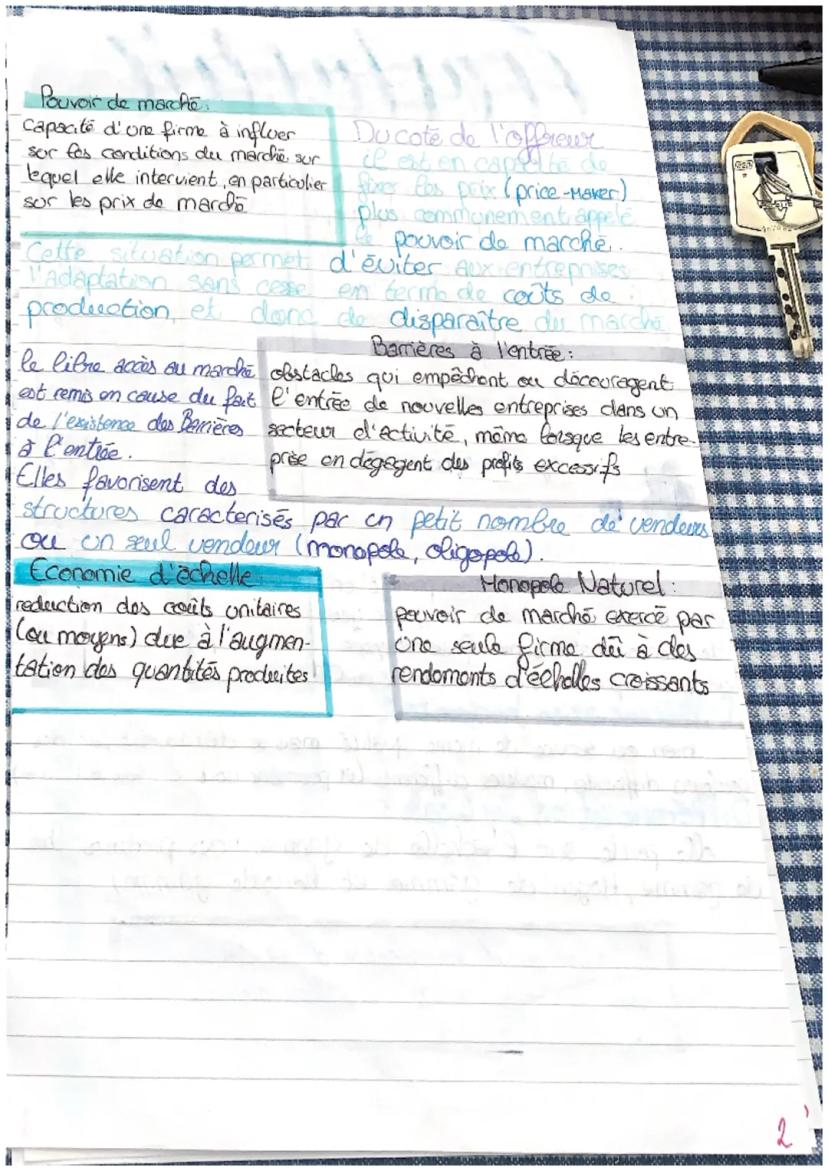 Pouvoir de marché:
Capacité d'une firme à influer
sur les conditions du marché sur
lequel elle intervient, en particulier
sur les prix de marché
Du coté de l'offreur
il est en capacité de
fixer les prix (price-Maker)
plus communement appelé
le pouvoir de marché.
Cette situation permet d'éviter aux entreprises
l'adaptation sans cesse en terme de coûts de
production, et donc de disparaître du marché
le libre accès au marché
est remis en cause du fait
de l'existence des Barrières
à l'entrée.
Elles favorisent des
structures caracterisés par un petit nombre de vendeurs
ou un seul vendeur (monopole, oligopole).
Barrières à l'entrée:
obstacles qui empêchent ou découragent
l'entrée de nouvelles entreprises dans un
secteur d'activité, même lorsque les entre-
prise en dégagent des profits excessifs
Economie d'échelle
reduction des coûts unitaires
(ou moyens) due à l'augmen-
tation des quantités produites
Monopole Naturel:
pouvoir de marché exercé par
une seule firme dû à des
rendements d'échelles croissants
2